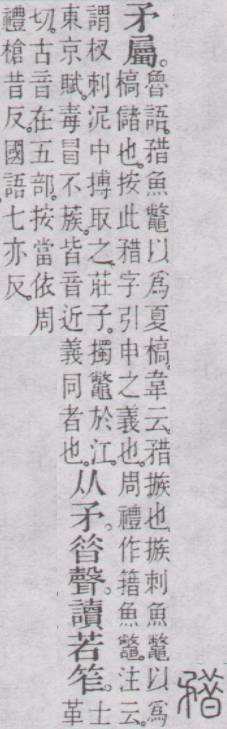 矠
矛屬。魯語。矠魚鼈以爲夏槁。韋云。矠也。刺魚鼈以爲
槁儲也。按此矠字引申之義也。周禮作籍魚鼈。注云。
謂杈刺泥中搏取之。莊子。擉鼈於江。
東京賦。毒冒不蔟。皆音近義同者也。从矛。㫺聲。讀若笮。士革
切。古音在五部。按當依周
禮槍昔反。國語七亦反。